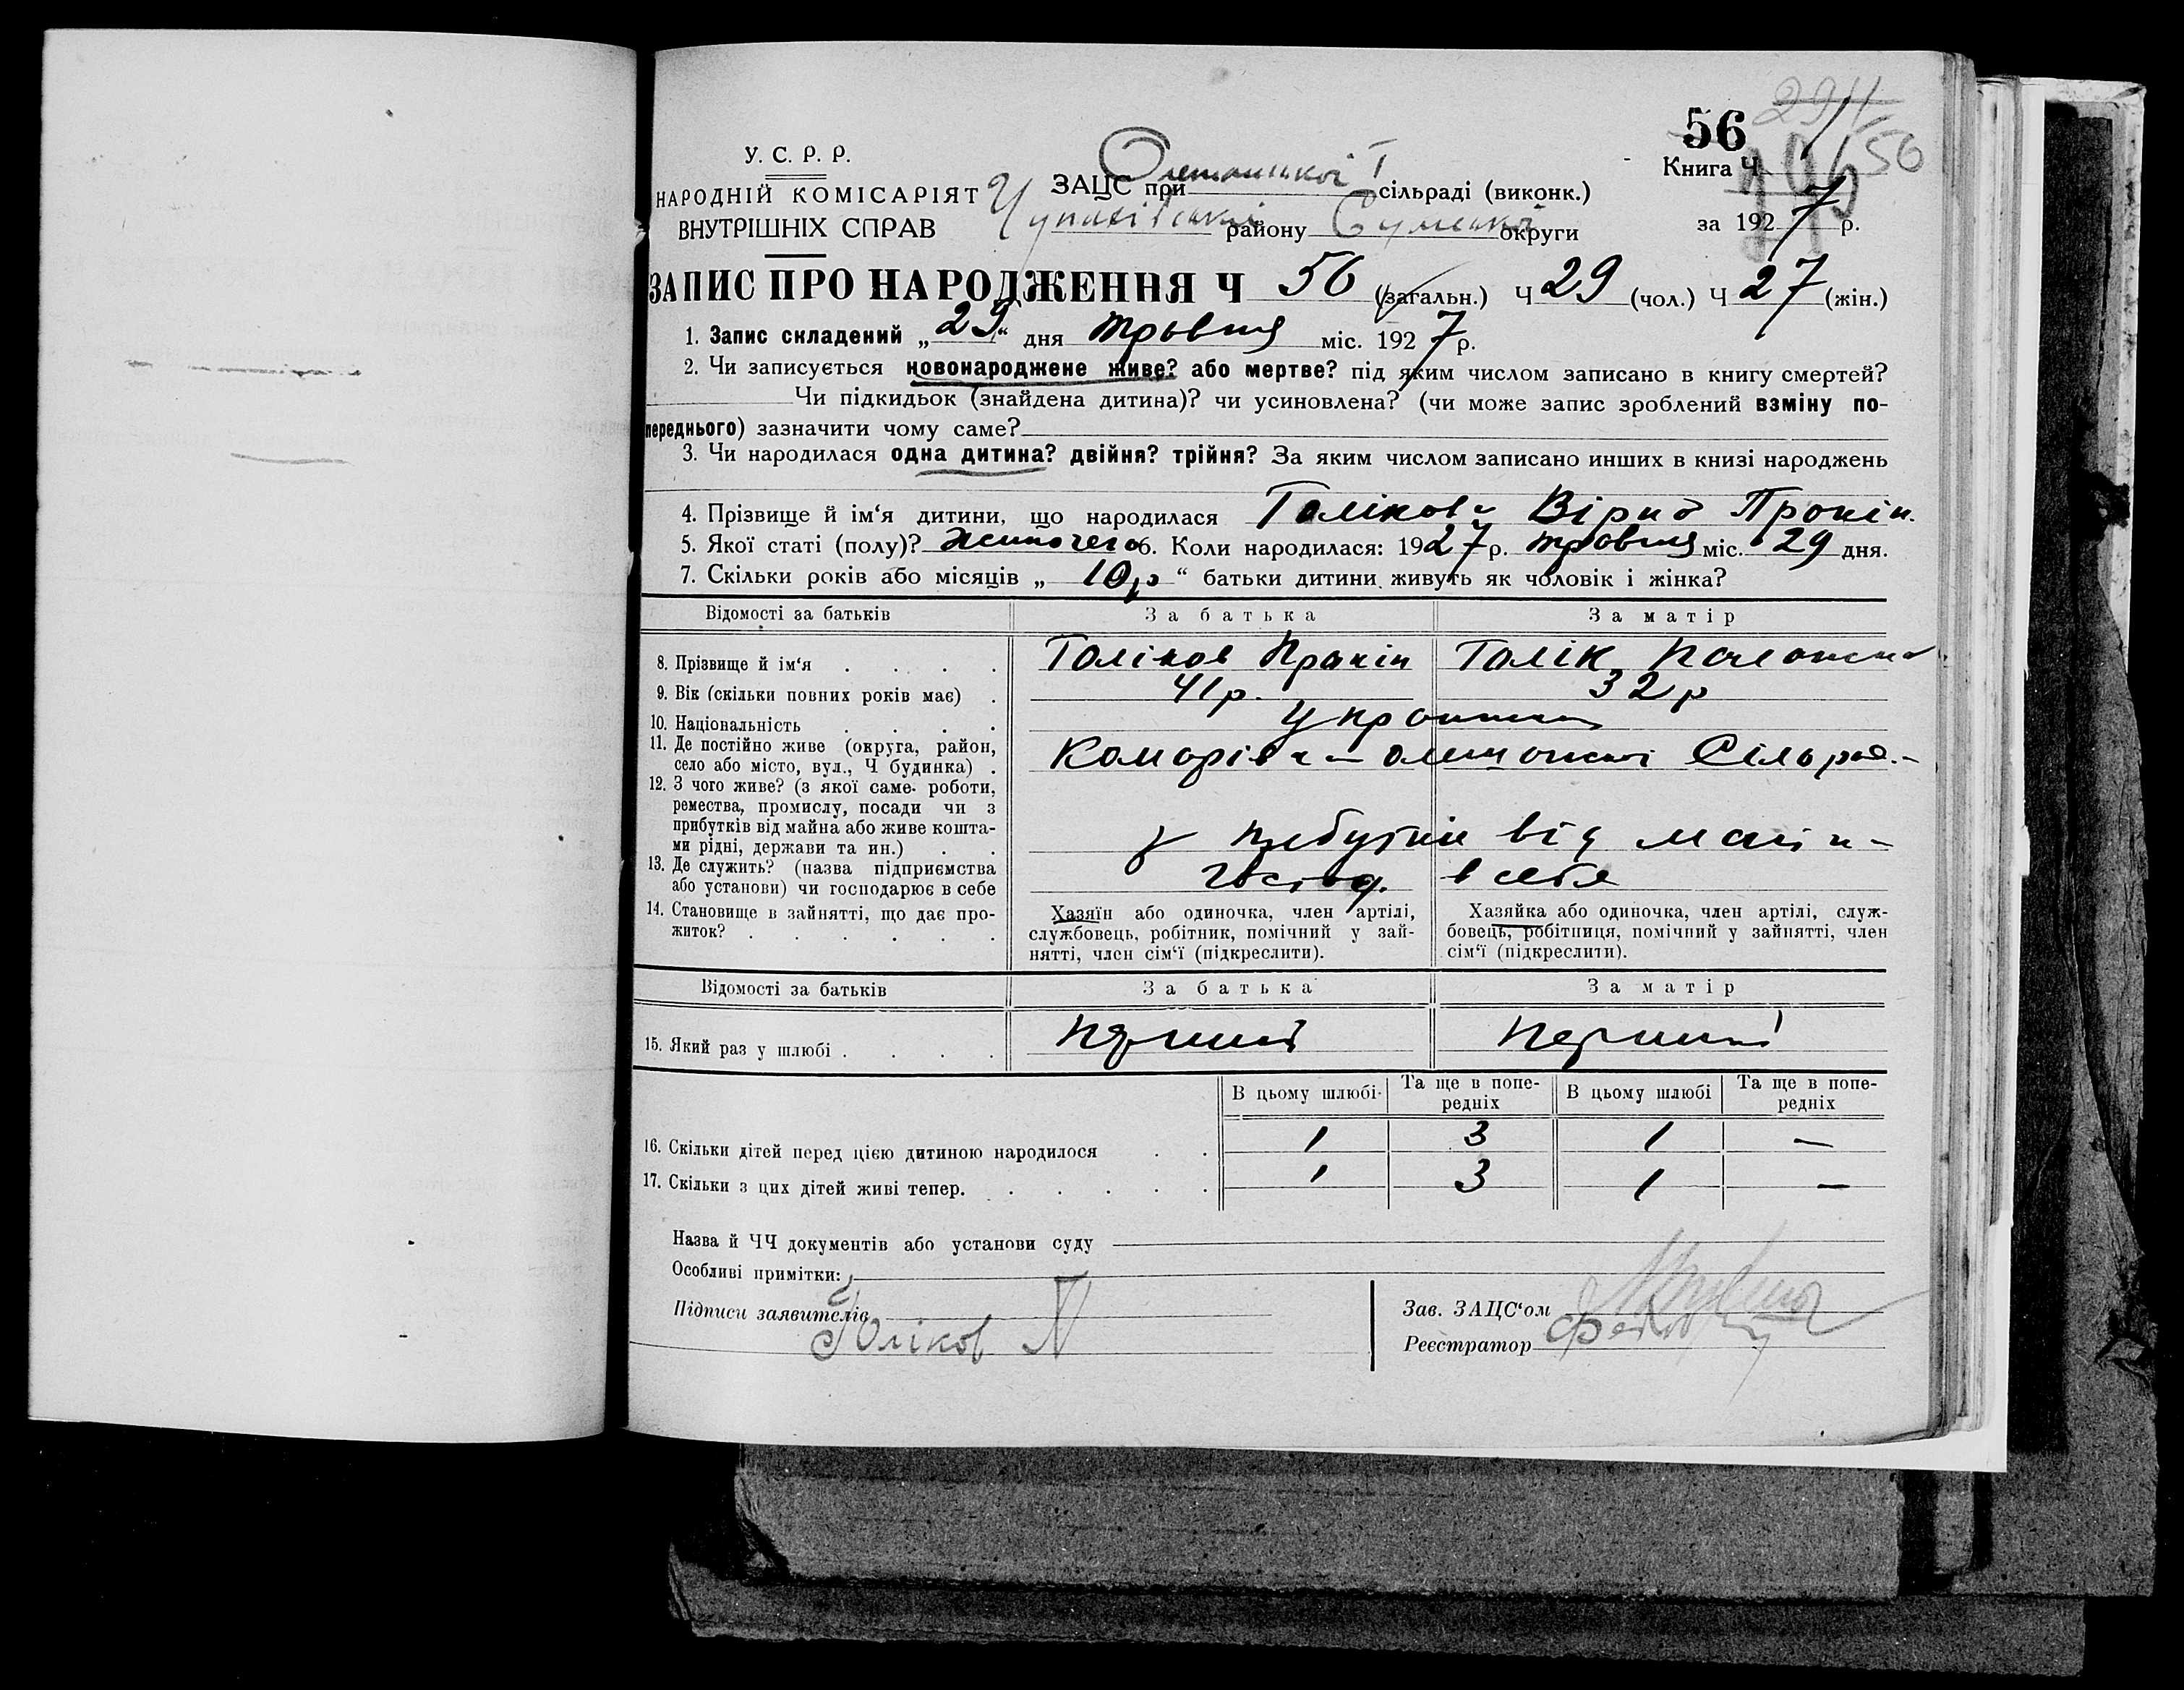 56
У. С. Р. Р.
НАРОДНІЙ КОМІСАРІЯТ
ВНУТРІШНІХ СПРАВ
ЗАЦС при сільраді (виконк.)
району Сумської округи
Книга Ч.
за 1927 р.
ЗАПИС ПРО НАРОДЖЕННЯ Ч 56 (загальн.) Ч 29 (чол.) Ч 27 (жін.)
1. Запис складений „29“ дня травня міс. 1927 р.
2. Чи записується новонароджене живе? або мертве? під яким числом записано в книгу смертей?
Чи підкидьок (знайдена дитина)? чи усиновлена? (чи може запис зроблений взміну по-
переднього) зазначити чому саме?
3. Чи народилася одна дитина? двійня? трійня? За яким числом записано инших в книзі народжень
4. Прізвище й ім‘я дитини, що народилася Голікова Віра Прокін.
5. Якої статі (полу)? Жиночего 6. Коли народилася: 1927 р. травня міс. 29 дня.
7. Скільки років або місяців „ 10р “ батьки дитини живуть як чоловік і жінка?
Відомості за батьків За батька За матір
8. Прізвище й ім‘я Голіков Прокін Голік.
9. Вік (скільки повних років має) 41р. 32р
10. Національність
11. Де постійно живе (округа, район,
село або місто, вул., Ч будинка) Сільрад.
12. З чого живе? (з якої саме роботи,
ремества, промислу, посади чи з
прибутків від майна або живе кошта-
ми рідні, держави та ин.) від
13. Де служить? (назва підприємства
або установи) чи господарює в себе Господ. в себе
14. Становище в зайнятті, що дає про-
житок?
Хазяїн або одиночка, член артілі,
службовець, робітник, помічний у зай-
нятті, член сім‘ї (підкреслити).
Хазяйка або одиночка, член артілі, служ-
бовець, робітниця, помічний у зайнятті, член
сім‘ї (підкреслити).
Відомості за батьків За батька За матір
15. Який раз у шлюбі Перший Перший
В цьому шлюбі Та ще в попе-
редніх В цьому шлюбі Та ще в попе-
редніх
16. Скільки дітей перед цією дитиною народилося 1 3 1 —
17. Скільки з цих дітей живі тепер. 1 3 1 —
Назва й ЧЧ документів або установи суду
Особливі примітки:
Підписи заявителів
Голіков П
Зав. ЗАЦС‘ом
Реєстратор